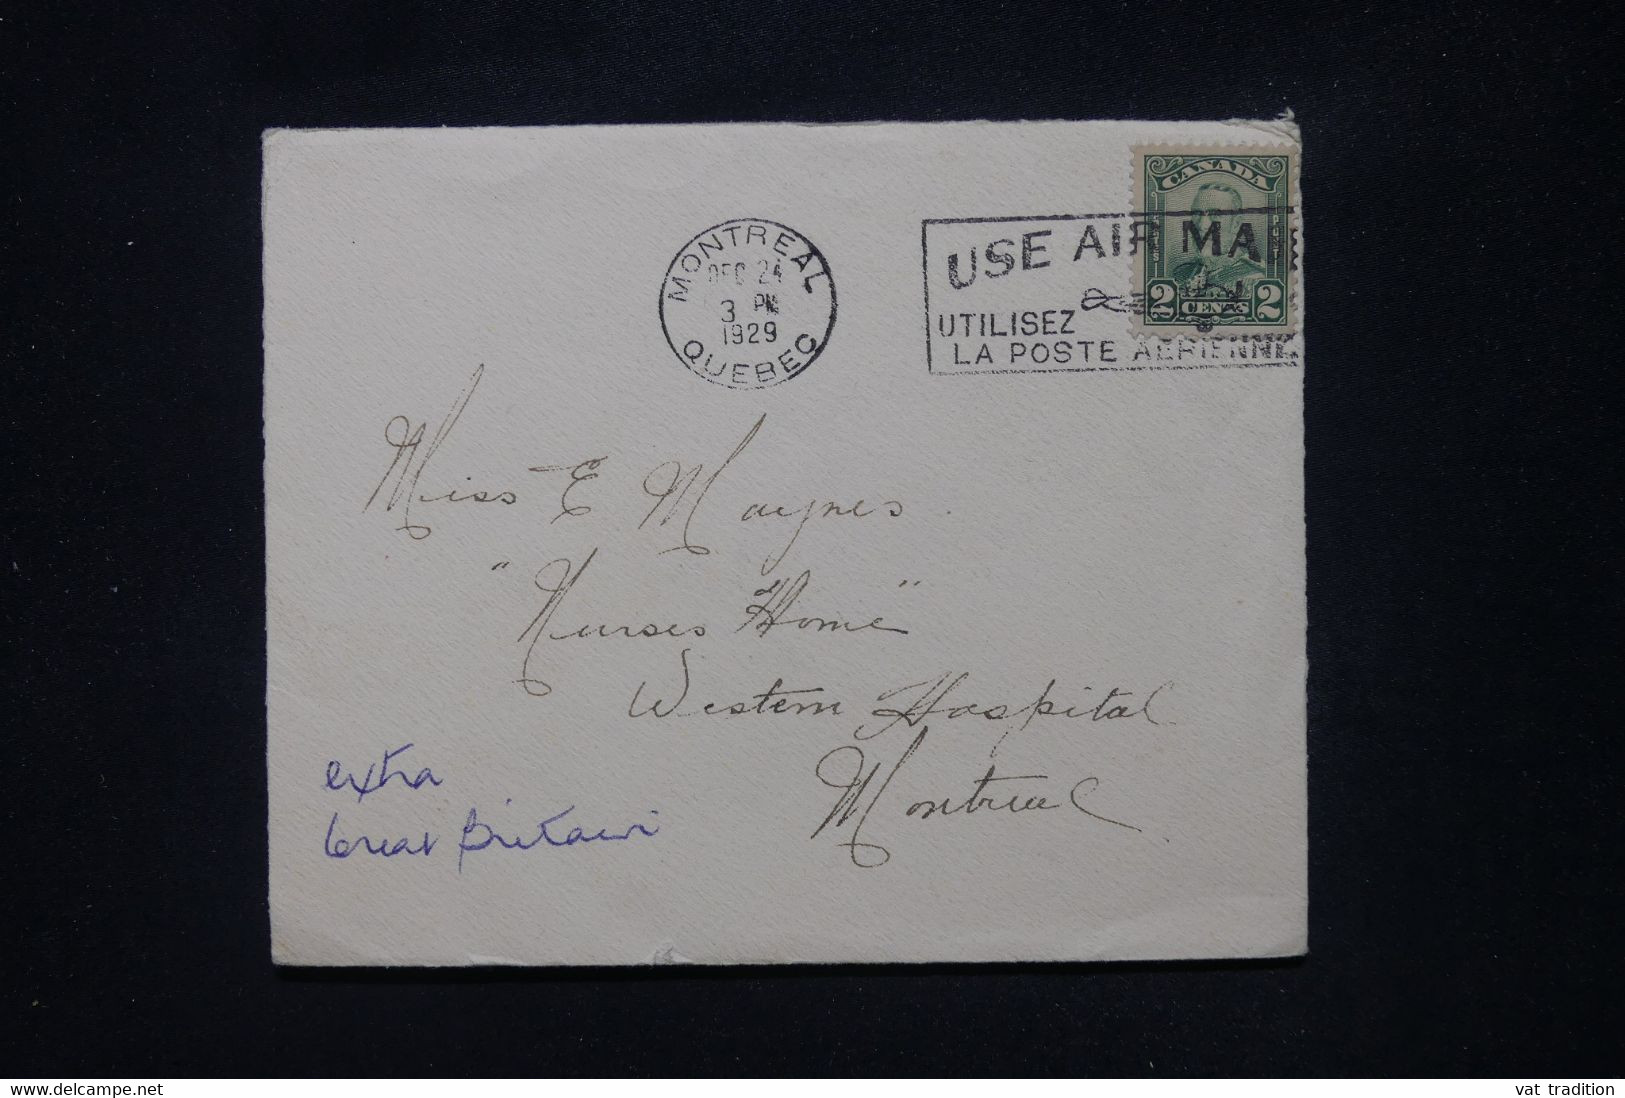 MONTREAL
DEC 24
3 PM
1929
QUEBEC
USE AIR MA
UTILISEZ
LA POSTE AERIENNE
CANADA
2 CENTS 2
Miss E Maynes
"Nurses Home"
Western Hospital
Montreal
extra
Great Britain
www.delcampe.net
vat tradition